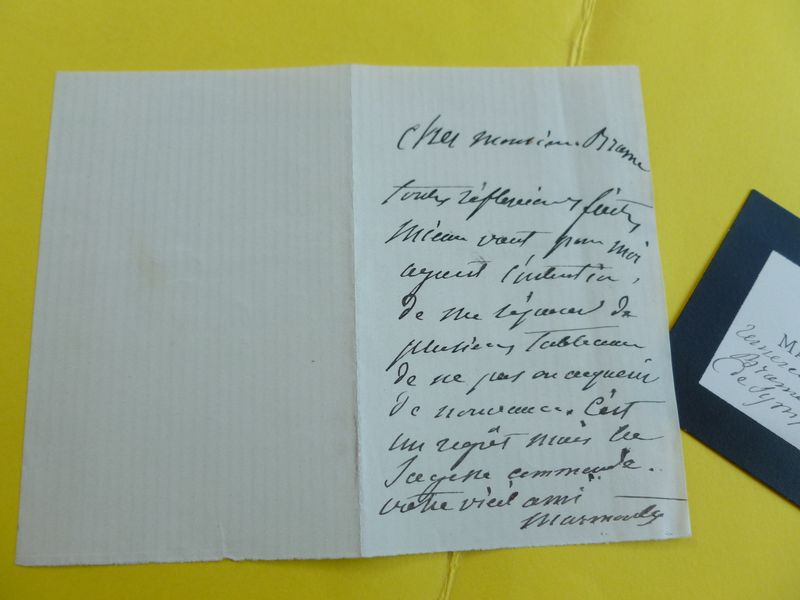 cher monsieur Brame
toutes réflexions faites
mieux vaut pour moi
ayant l'intention
de me séparer de
plusieurs tableaux
de ne pas en acquérir
de nouveaux. C'est
un regrêt mais la
sagesse commande.
votre vieil ami
Marmontel
M
Brame
de symp